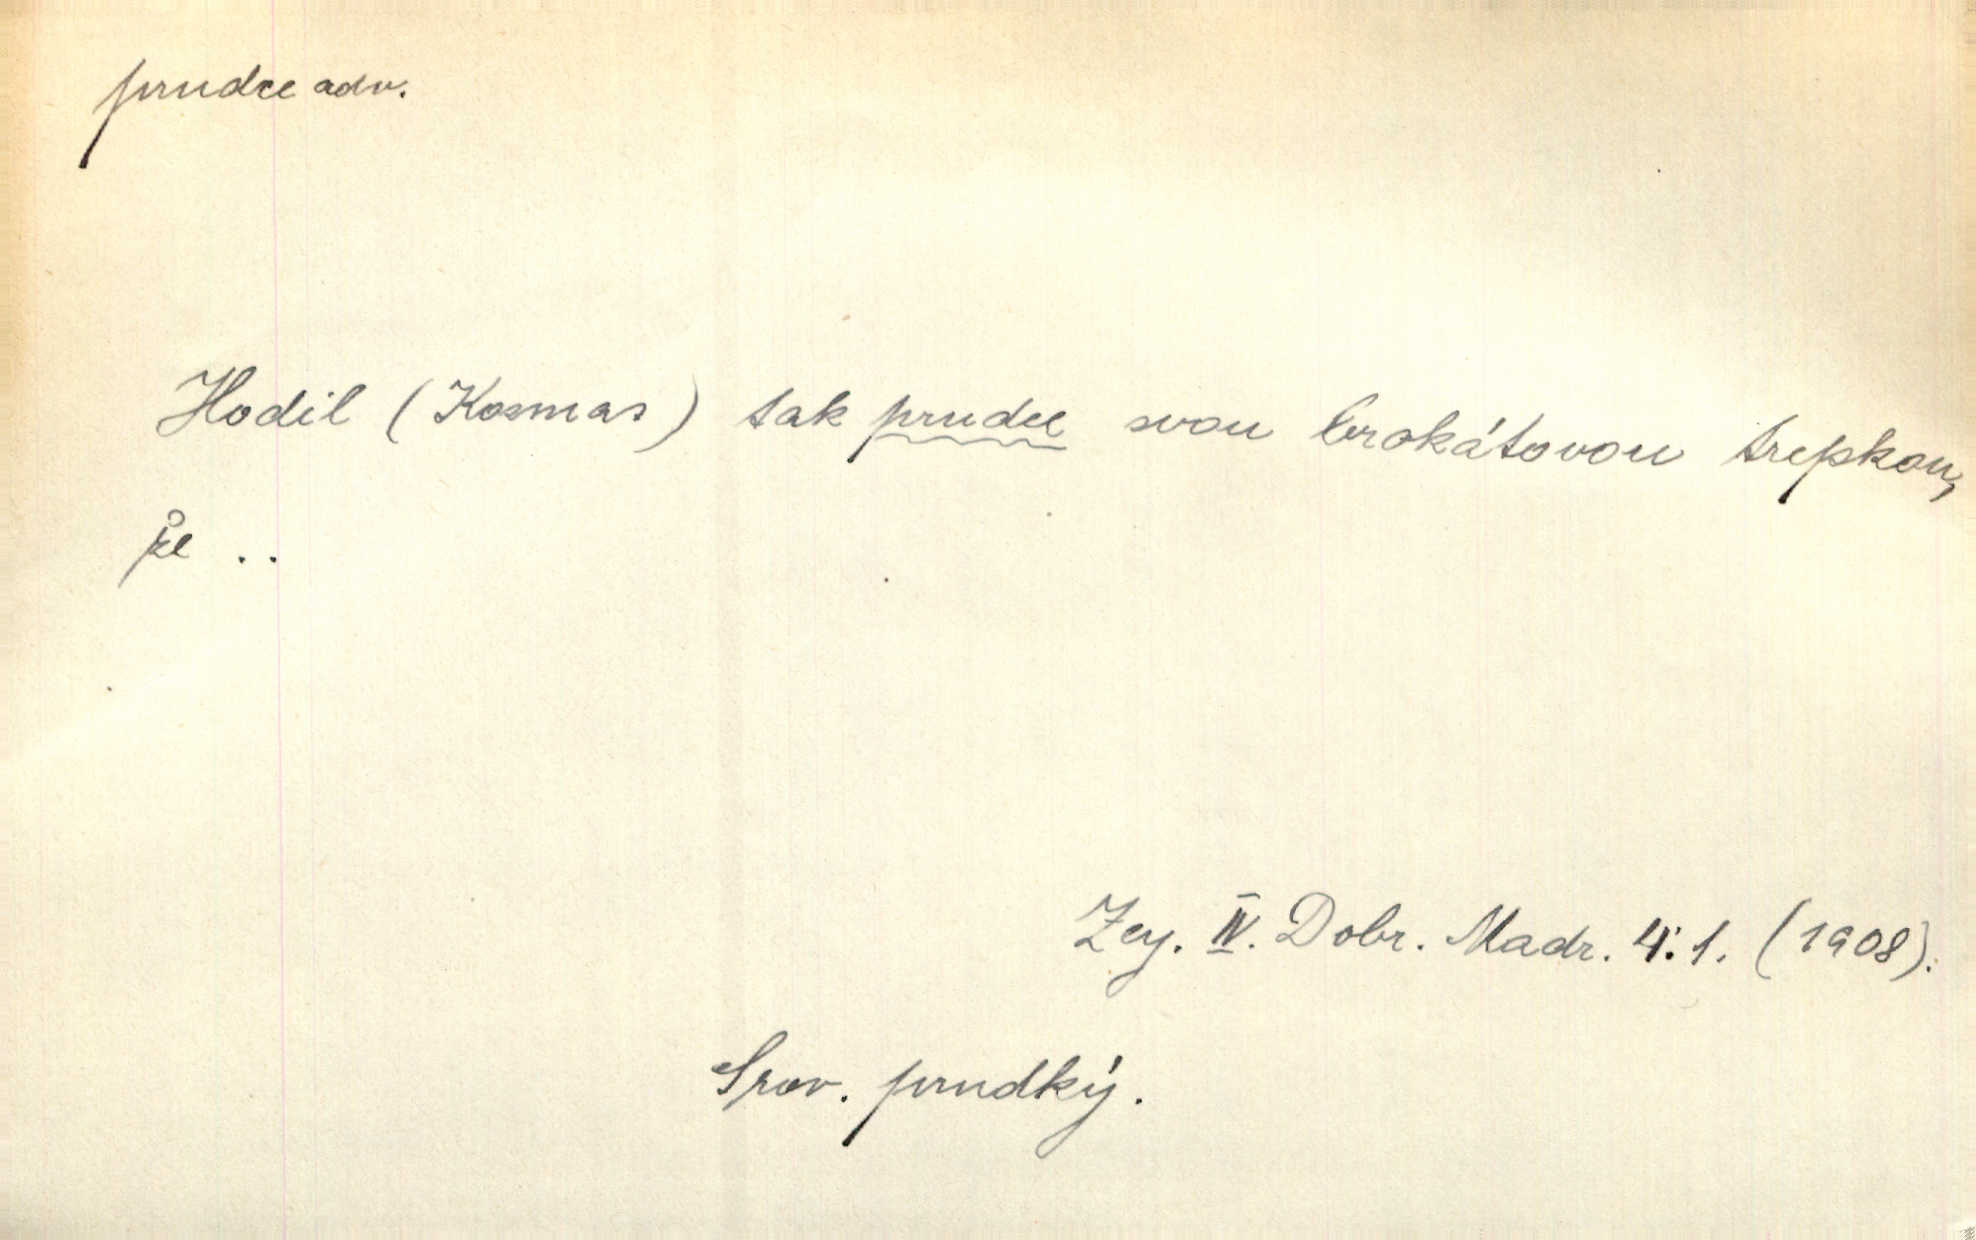 prudce adv.
Hodil (Kosmas) tak prudce svou brokátovou trepkou,
že ..
Zey. IV. Dobr. Madr. 4: 1. (1908).
Srov. prudký.